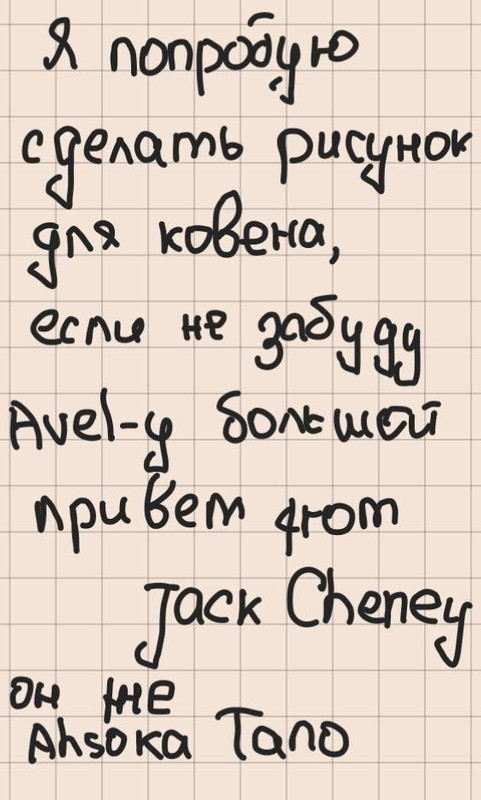 Я попробую
сделать рисунок
для ковена,
если не забуду
Avel-у большой
привет от
Jack Cheney
он же
Ahsoka Tano